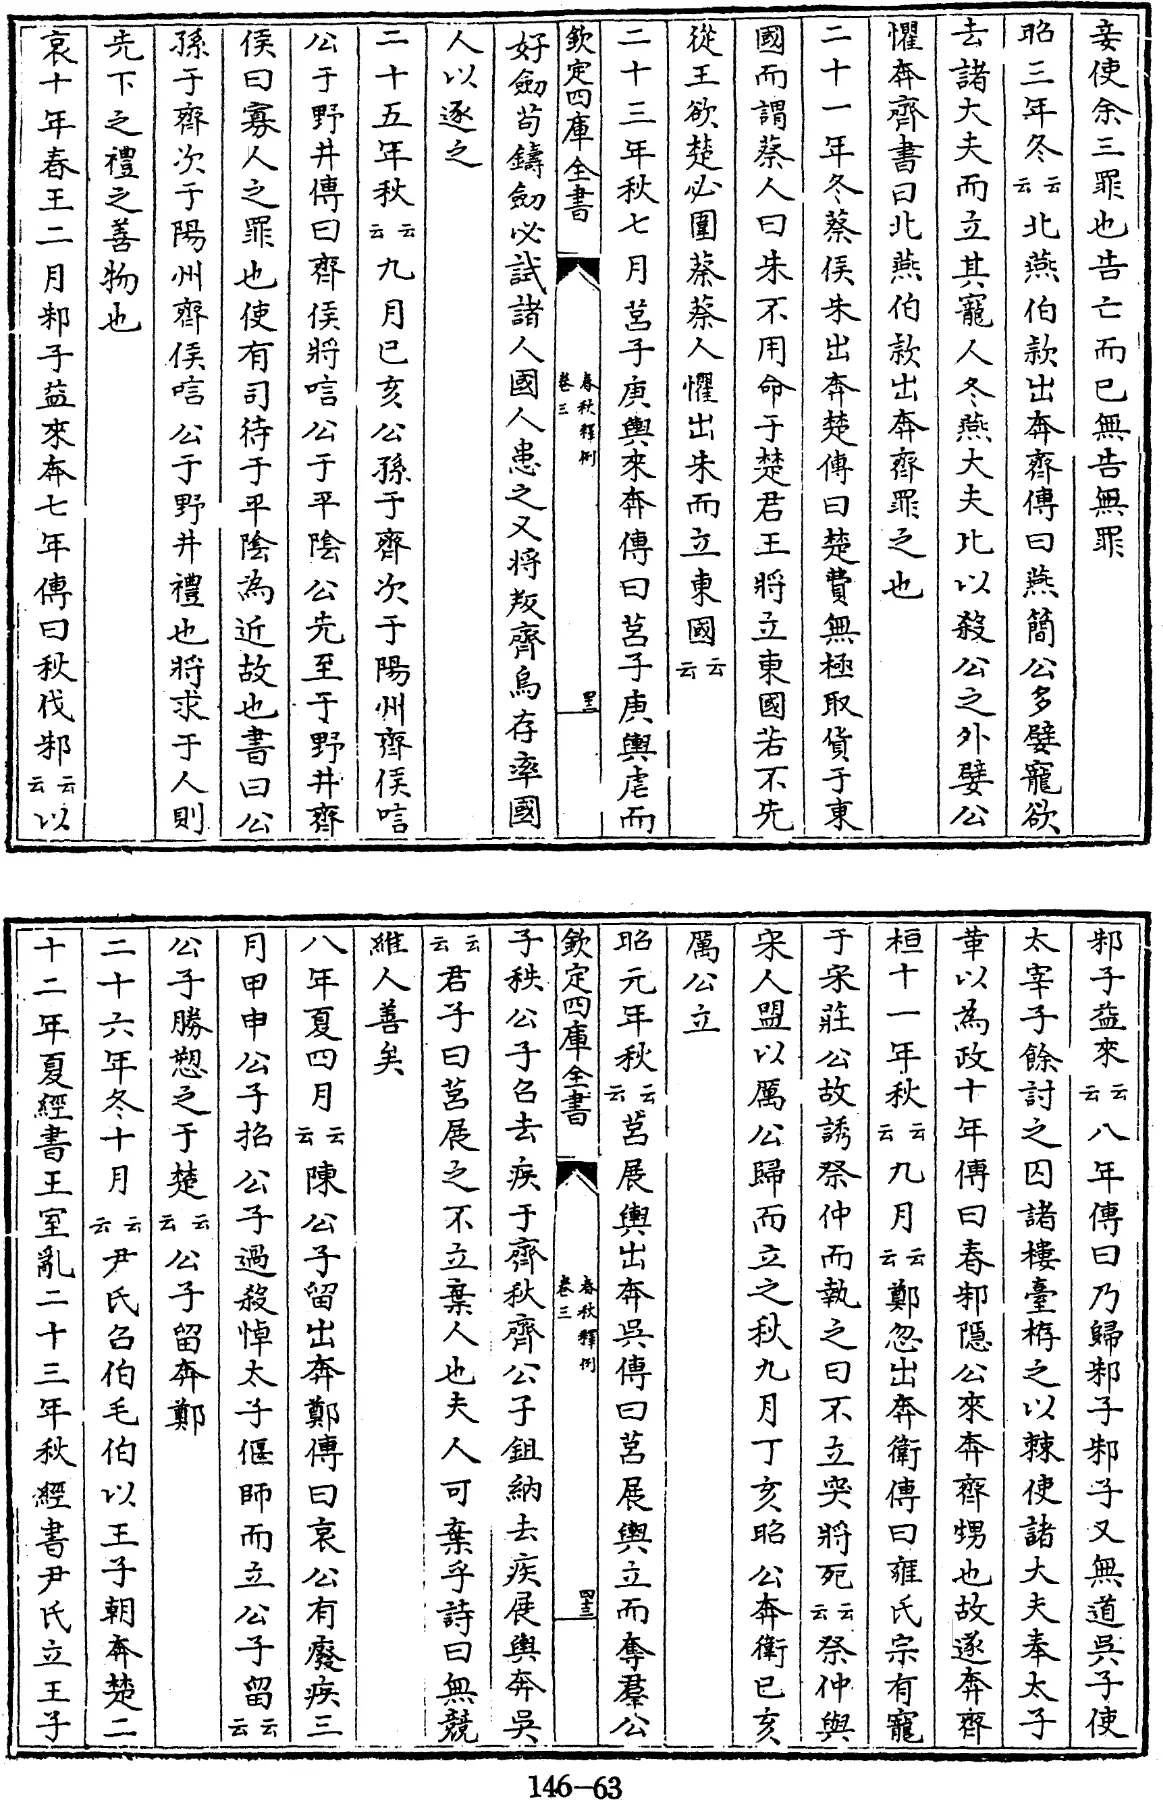 妾使余三罪也告亡而已無告無罪
昭三年冬云云北燕伯款出奔齊傳曰燕簡公多嬖寵欲
去諸大夫而立其寵人冬燕大夫比以殺公之外嬖公
懼奔齊書曰北燕伯款出奔齊罪之也
二十一年冬蔡侯朱出奔楚傳曰楚費無極取貨于東
國而謂蔡人曰朱不用命于楚君王將立東國若不先
從王欲楚必圍蔡蔡人懼出朱而立東國云云
二十三年秋七月莒子庚輿來奔傳曰莒子庚輿虐而
欽定四庫全書 春秋釋例 卷三 四二
好劔茍鑄劔必試諸人國人患之又將叛齊烏存率國
人以逐之
二十五年秋云云九月已亥公孫于齊次于陽州齊侯唁
公于野井傳曰齊侯將唁公于平陰公先至于野井齊
侯曰寡人之罪也使有司待于平陰為近故也書曰公
孫于齊次于陽州齊侯唁公于野井禮也將求于人則
先下之禮之善物也
哀十年春王二月邾子益來奔七年傳曰秋伐邾云云以
邾子益來云云八年傳曰乃歸邾子邾子又無道吳子使
太宰子餘討之囚諸樓臺栫之以棘使諸大夫奉太子
革以為政十年傳曰春邾隱公來奔齊甥也故遂奔齊
桓十一年秋云云九月云云鄭忽出奔衛傳曰雍氏宗有寵
于宋莊公故誘祭仲而執之曰不立突將死云云祭仲與
宋人盟以厲公歸而立之秋九月丁亥昭公奔衛已亥
厲公立
昭元年秋云云莒展輿出奔吳傳曰莒展輿立而奪羣公
欽定四庫全書 春秋釋例 卷三 四三
子秩公子召去疾于齊秋齊公子鉏納去疾展輿奔吳
云云君子曰莒展之不立棄人也夫人可棄乎詩曰無競
維人善矣
八年夏四月云云陳公子留出奔鄭傳曰哀公有廢疾三
月甲申公子招公子過殺悼太子偃師而立公子留云云
公子勝愬之于楚云云公子留奔鄭
二十六年冬十月云云尹氏召伯毛伯以王子朝奔楚二
十二年夏經書王室亂二十三年秋經書尹氏立王子
146-63